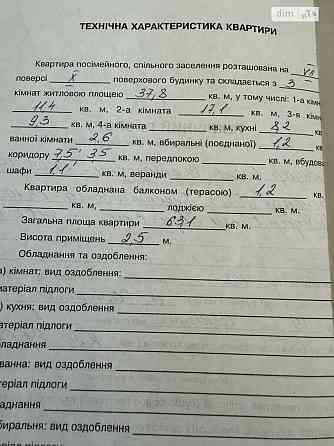 dim.ria
ТЕХНІЧНА ХАРАКТЕРИСТИКА КВАРТИРИ
Квартира посімейного, спільного заселення розташована на VII
поверсі X поверхового будинку та складається з 3
кімнат житловою площею 37,8 кв. м, у тому числі: 1-а кімн
11,4 кв. м, 2-а кімната 17,1 кв. м, 3-я кімн
9,3 кв. м, 4-а кімната кв. м, кухні 8,2 кв
ванної кімнати 2,6 кв. м, вбиральні (поєднаної) 1,2 кв
коридору 7,5 3,5 кв. м, передпокою кв. м, вбудова
шафи 1,1 кв. м, веранди кв. м.
Квартира обладнана балконом (терасою) 1,2 кв.
кв. м, лоджією кв. м.
Загальна площа квартири 63,1 кв. м.
Висота приміщень 2,5 м.
Обладнання та оздоблення:
а) кімнат: вид оздоблення:
матеріал підлоги
) кухня: вид оздоблення
атеріал підлоги
бладнання
ванна: вид оздоблення
теріал підлоги
аднання
биральня: вид оздоблення